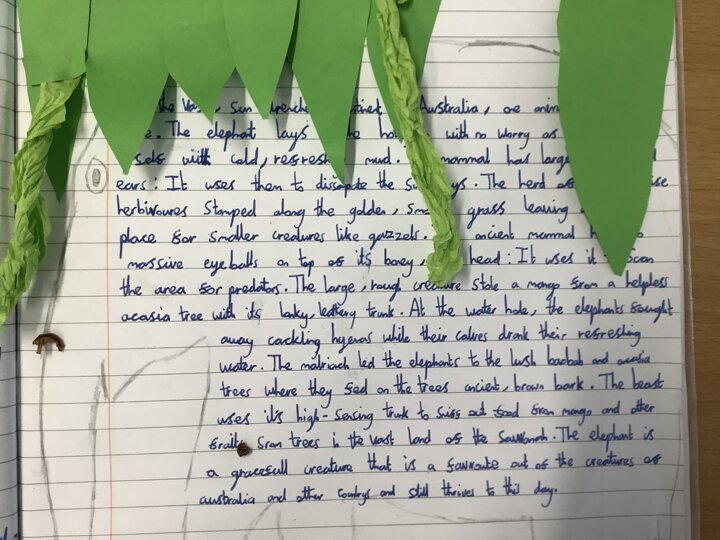 the Sun drenched Australia, one
The elephant lays the with no worry as
with cold, refresh mud. mammal has large
ears: It uses them to dissopate the su ys. The herd of ise
herbivoures stamped along the golden, sm grass leaving
place for smaller creatures like gazzels. ancient mammal h o
massive eyeballs on top of its boney head: It uses it scan
the area for predators. The large, rough creature stole a mango from a helpless
acasia tree with its lanky, leathery trunk. At the water hole, the elephants fought
away cackling hyenas while their calves drank their refreshing
water. The matriach led the elephants to the lush baobab and acasia
trees where they fed on the trees ancient, brown bark. The beast
uses it's high-sensing trunk to sniff out food from mango and other
fruit from trees in the vast land of the Savannah. The elephant is
a gracefull creature that is a favroute out of the creatures of
australia and other countrys and still thrives to this day.